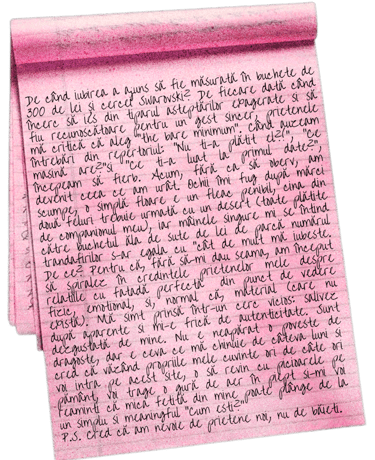 De când iubirea a ajuns să fie măsurată în buchete de
300 de lei și cercei Swarovski? De fiecare dată când
încerc să ies din tiparul așteptărilor exagerate și să
fiu recunoscătoare pentru un gest sincer, prietenele
mă critică că aleg "the bare minimum". Când auzeam
întrebări din repertoriul: "Nu ți-a plătit el?(", "Ce
mașină are?" și "Ce ți-a luat la primul date?"
începeam să fierb. Acum, fără ca să observ, am
devenit ceea ce am urât. Ochii îmi fug după mărci
scumpe, o simplă floare e un fleac penibil, cina din
două feluri trebuie urmată cu un desert (toate plătite
de companionul meu), iar mâinele singure mi se întind
către buchetul ăla de sute de lei de parcă numărul
trandafirilor s-ar egala cu "cât de mult mă iubește.
De ce? Pentru că, fără să-mi dau seama, am început
să spiralez în credințele prietenelor mele despre
relațiile cu fatadă perfectă din punct de vedere
fizic, emoțional, și, normal că, material (care nu
epistă). Mă simt prinsă într-un cerc vicios: salivez
după aparențe și mi-e frică de autenticitate. Sunt
dezgustată de mine. Nu e neapărat o poveste de
dragoste, dar e ceva ce mă chinuie de câteva luni și
cred că văzând propriile mele cuvinte ori de câte ori
voi intra pe acest site, o să revin cu picioarele pe
pământ, voi trage o gură de aer în piept și-mi voi
reaminti că mica fetiță din mine poate plânge de la
un simplu și meaningful "Cum ești?"
P.S. Cred că am nevoie de prietene noi, nu de băieți.